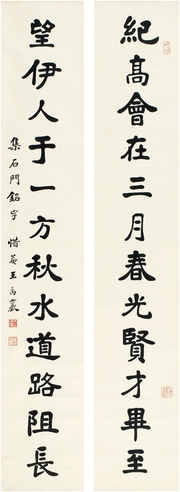 紀高會在三月春光賢才畢至
望伊人于一方秋水道路阻長
集石門銘字 惜菴王禹襄